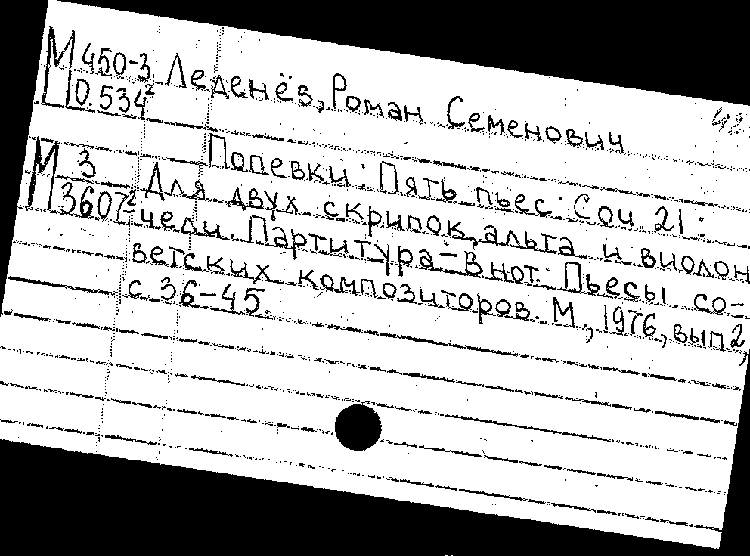 М 450-3 Леденёв, Роман Семенович
10.534²
Попевки: Пять пьес: Соч. 21:
М 3 Для двух скрипок, альта и виолон
3607² чели. Партитура - В нот.: Пьесы со-
ветских композиторов. М., 1976, вып 2,
с. 36-45.